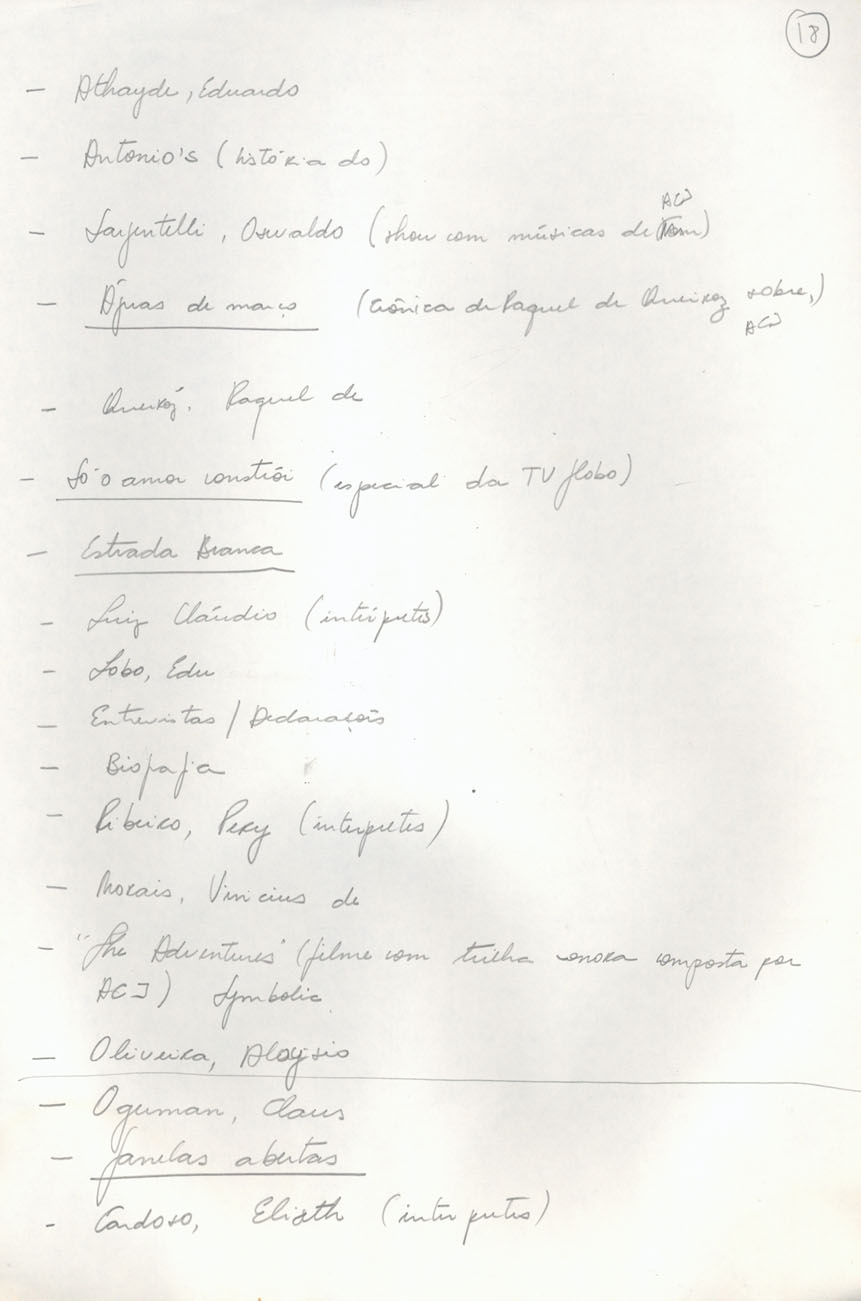 18
- Athayde, Eduardo
- Antonio's (história do)
ACJ
- Sargentelli, Oswaldo (show com músicas de Tom)
- Águas de março (crônica de Raquel de Queiroz sobre,)
ACJ
- Queiróz, Raquel de
- Só o amor constrói (especial da TV Globo)
- Estrada Branca
- Luiz Cláudio (intérpretes)
- Lobo, Edu
- Entrevistas / Declarações
- Biografia
- Ribeiro, Pery (interpretes)
- Morais, Vinicius de
- "The Adventures" (filme com trilha sonora composta por
ACJ) Symbolic
- Oliveira, Aloysio
- Oguman, Claus
- Janelas abertas
- Cardoso, Elizeth (interpretes)